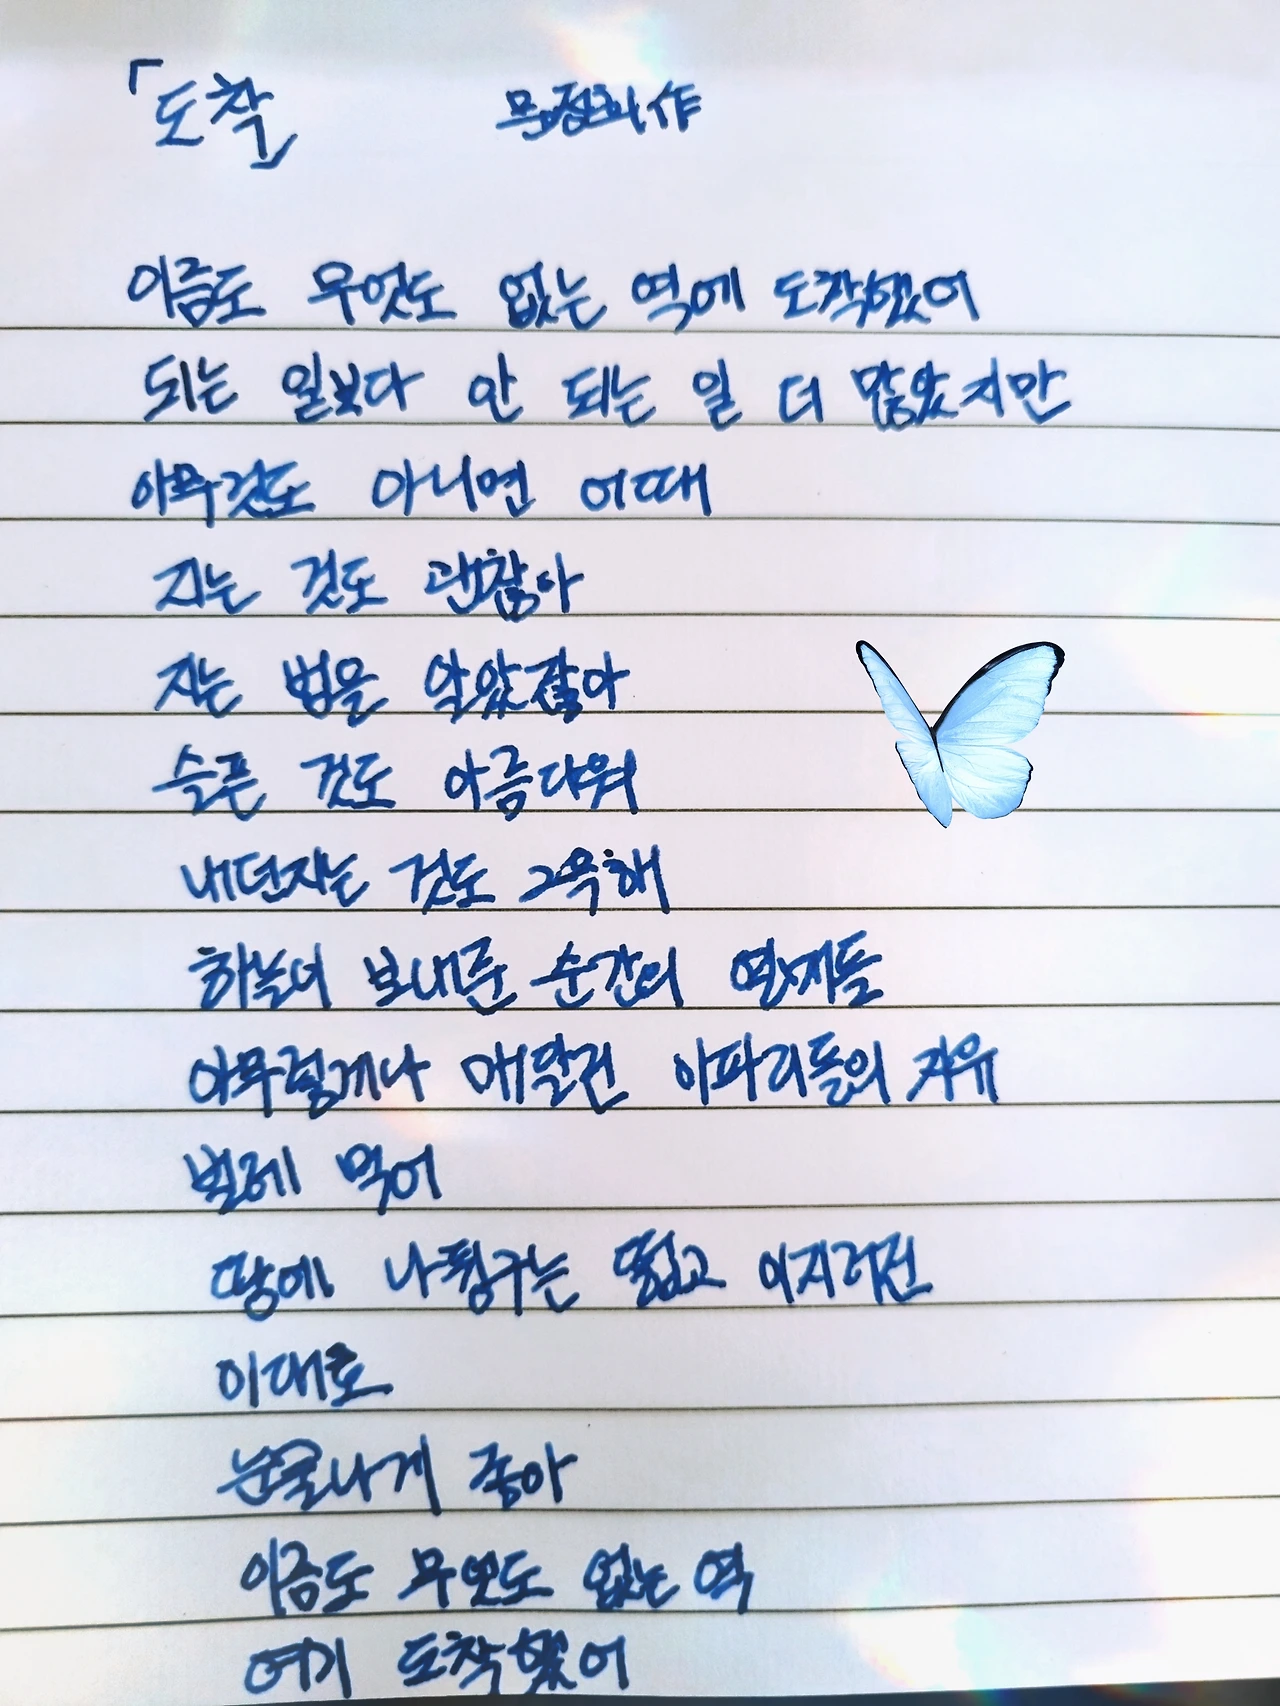 「도착」 문정희 作
이름도 무엇도 없는 역에 도착했어
되는 일보다 안 되는 일 더 많았지만
아무것도 아니면 어때
지는 것도 괜찮아
지는 법을 알았잖아
슬픈 것도 아름다워
내던지는 것도 그윽해
하늘이 보내준 순간의 열매들
아무렇게나 매달린 이파리들의 자유
벌레 먹어
땅에 나뒹구는 떫고 이지러진
이대로
눈물나게 좋아
이름도 무엇도 없는 역
여기 도착했어